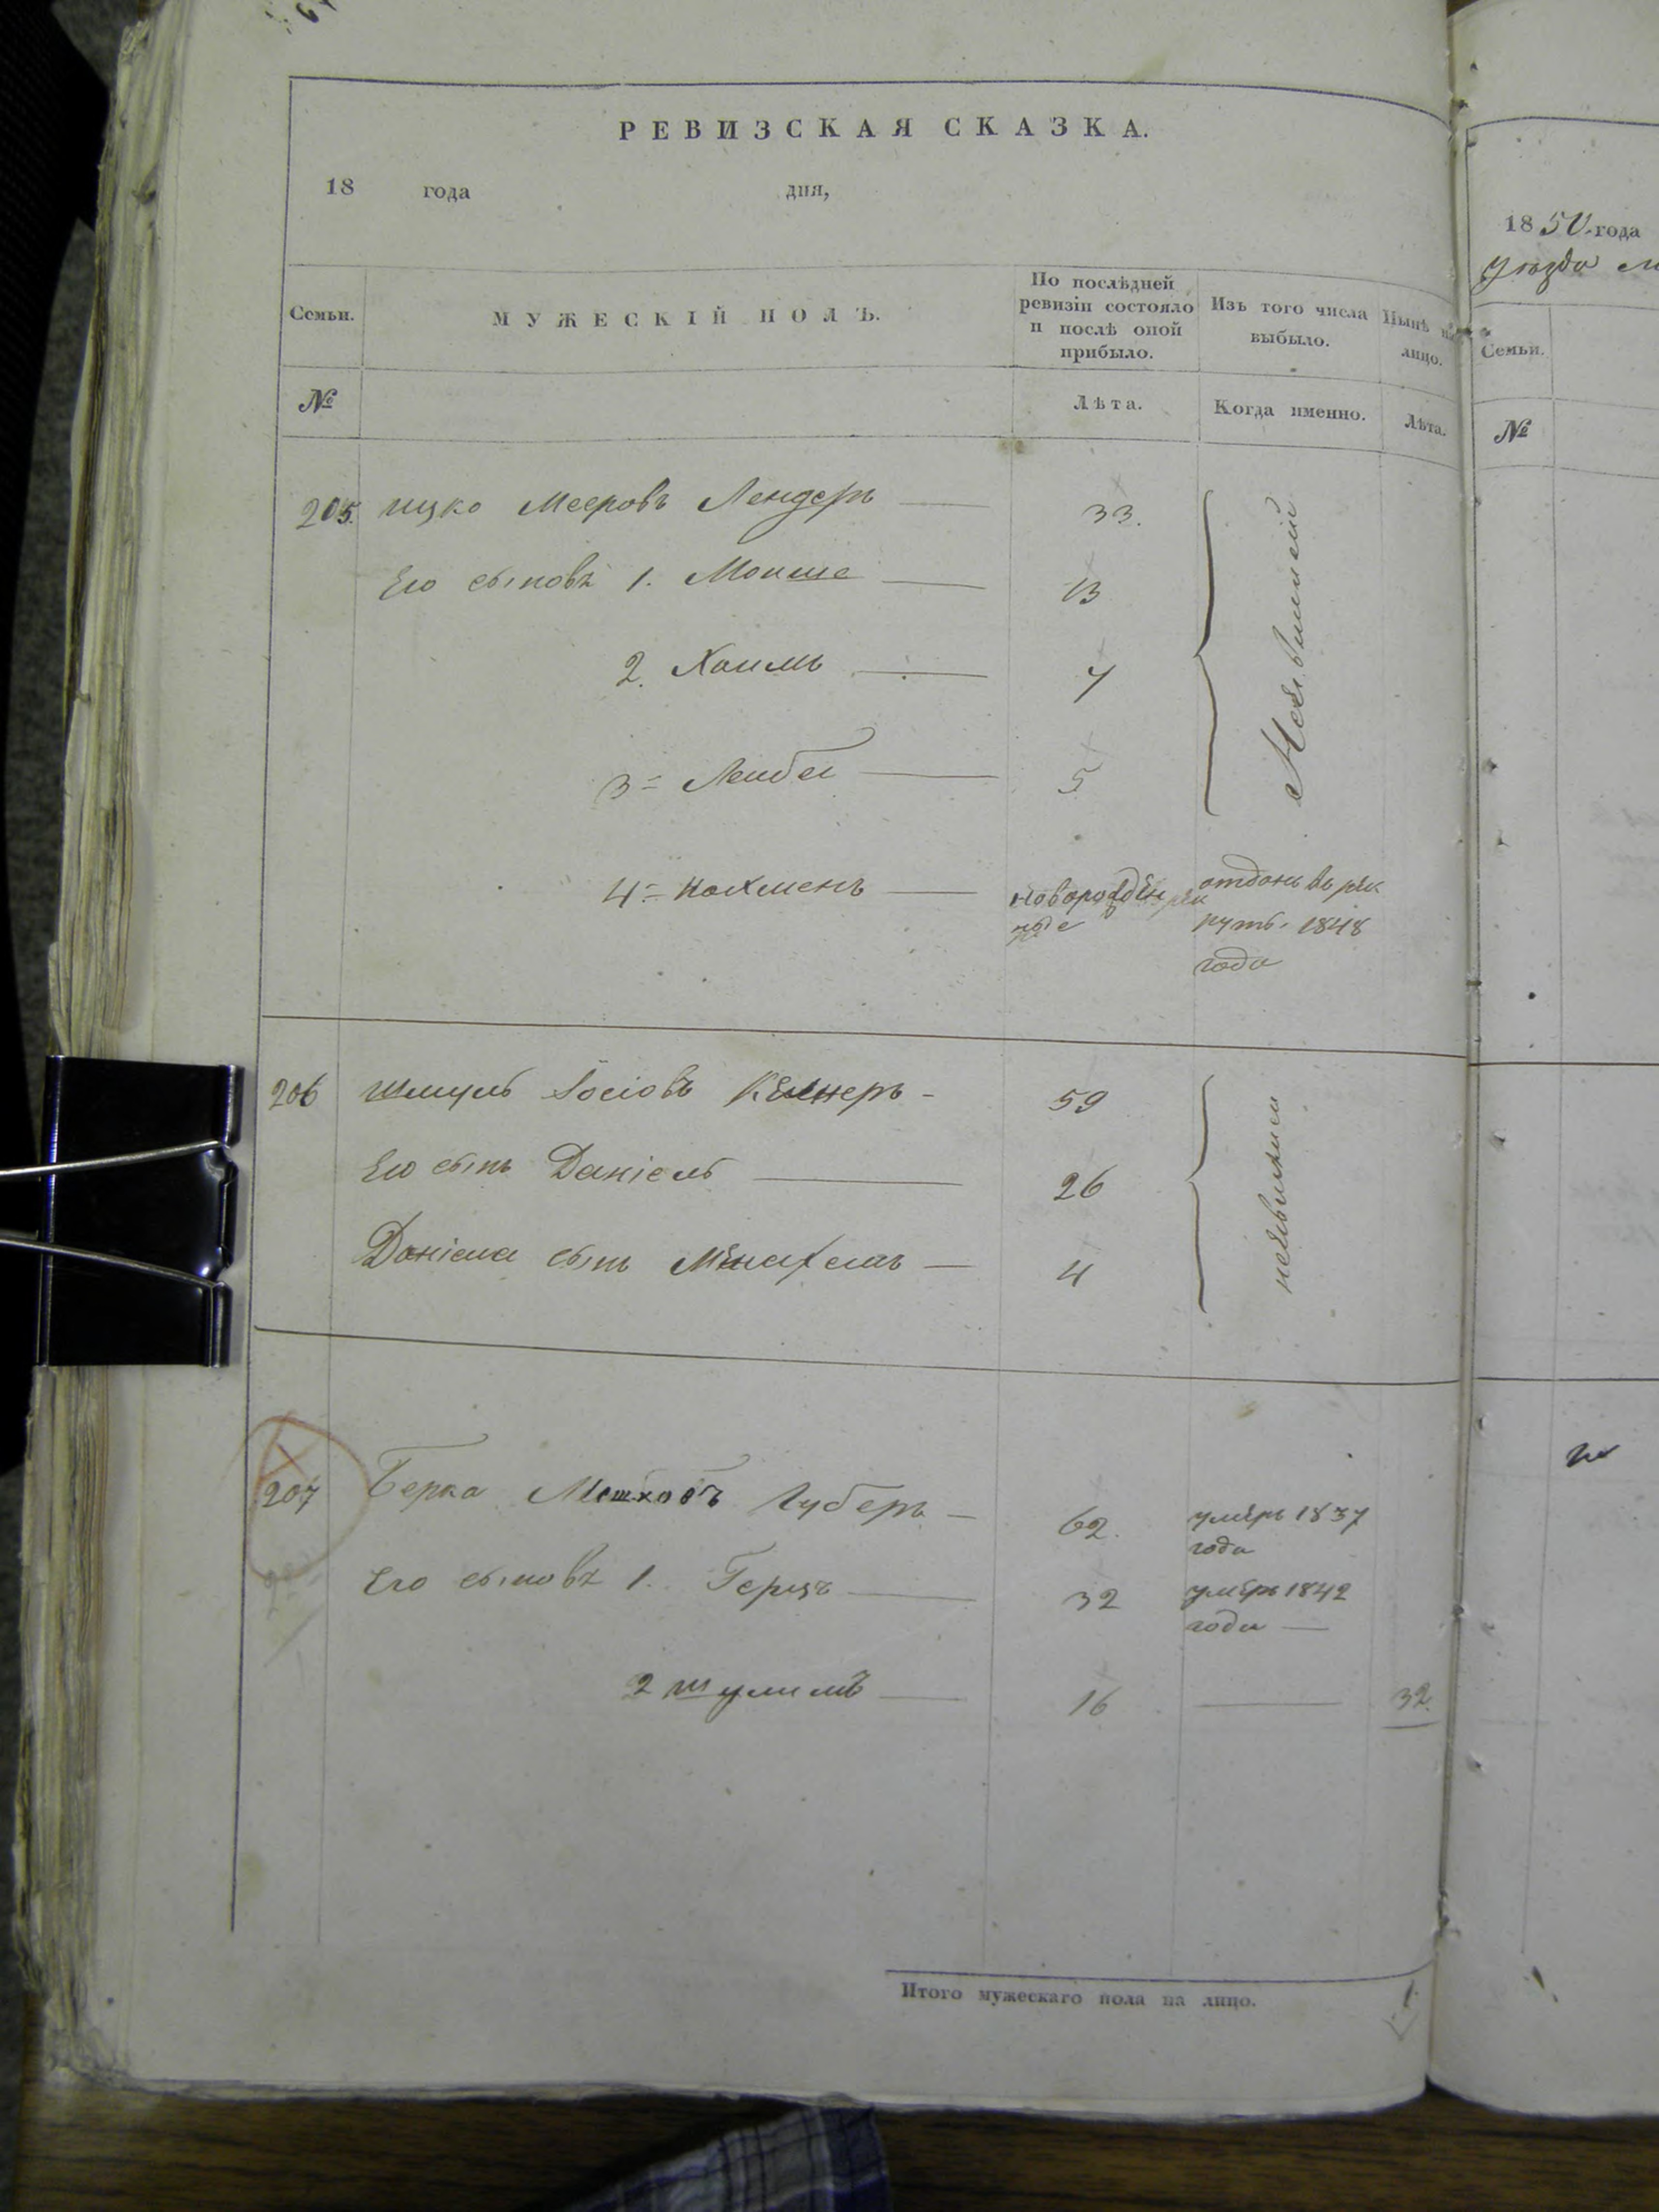 РЕВИЗСКАЯ СКАЗКА.
18 года дня,
Семьи.
МУЖЕСКІЙ ПОЛЪ.
По послѣдней ревизіи состояло и послѣ оной прибыло.
Изъ того числа выбыло.
Нынѣ на лицо.
№
Лѣта.
Когда именно.
Лѣта.
205. Ицко Мееровъ Лендеръ — 33.
Его сыновья 1. Мошше — 13
2. Хаимъ — 7
3 = Лейбе — 5
4 = Нахменъ — новорожденные отданъ въ рекруты 1848 года
206 Шмуль Іосіовъ Келнеръ - 59
Его сынъ Даніель — 26
Даніеля сынъ Менахемъ — 4
неявился
207 Берка Мошковъ Губеръ — 62. умеръ 1837 года
Его сыновья 1. Герцъ — 32 умеръ 1842 года —
2 Шулимъ — 16 — 32.
Итого мужескаго пола на лицо. 1.
1850. года
уѣзда
Семьи.
№